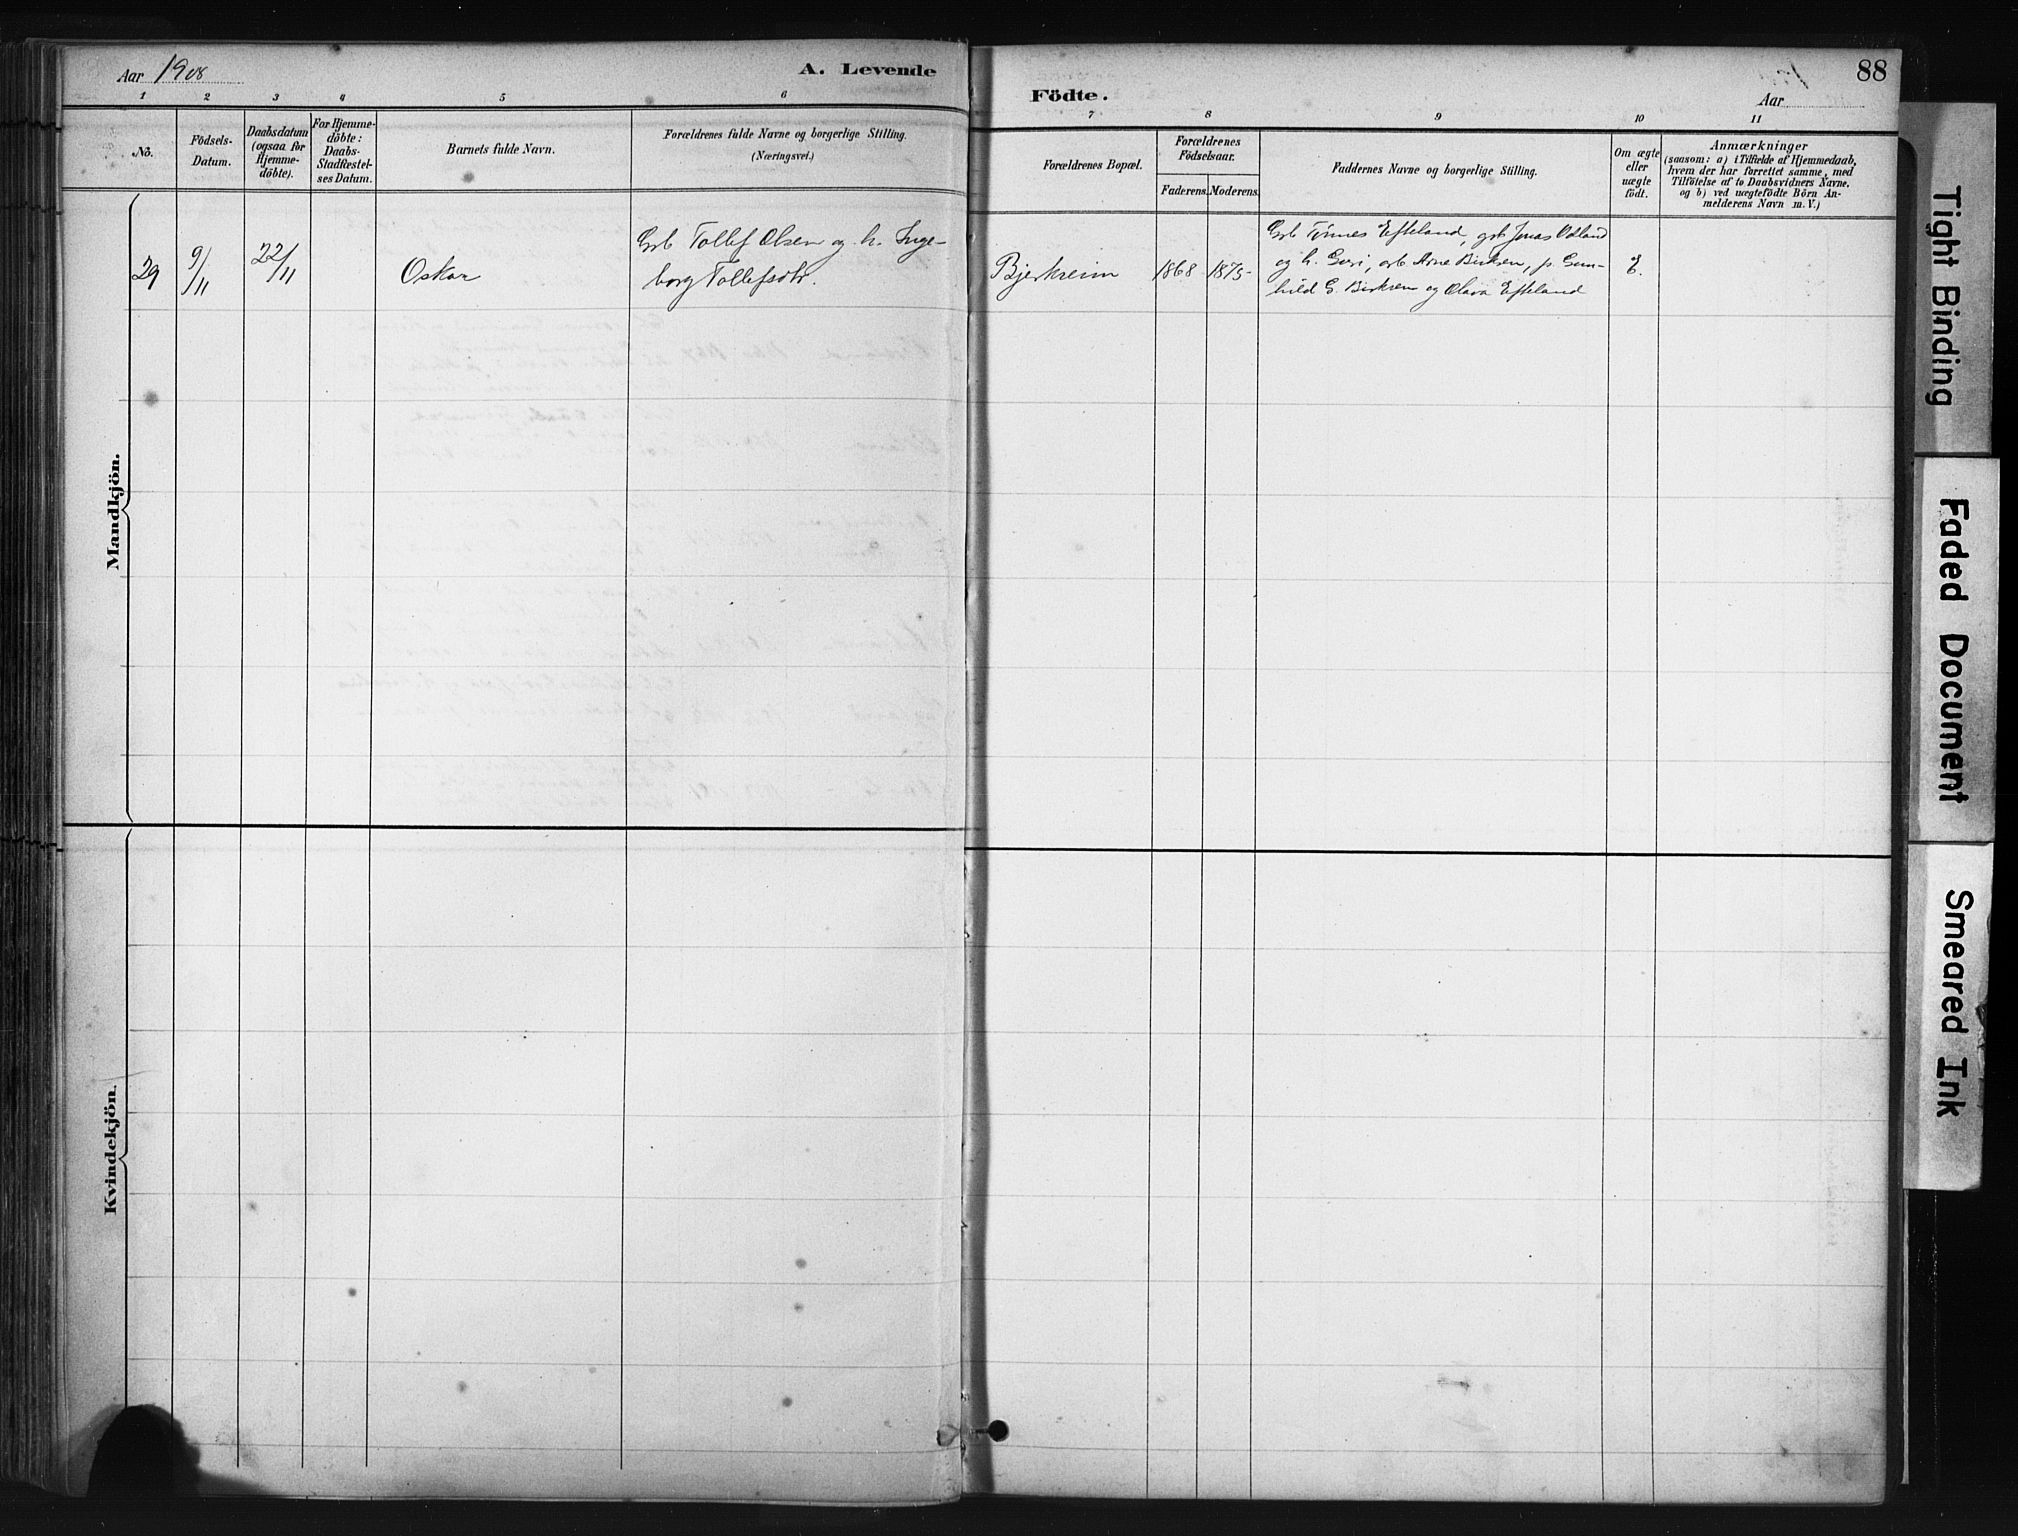 Aar 1908
A. Levende
1 2 3 4 5 6
No.
Födsels-
Datum.
Daabsdatum
(ogsaa for
Hjemme-
döbte).
For Hjemme-
döbte:
Daabs-
Stadfæstel-
ses Datum.
Barnets fulde Navn.
Forældrenes fulde Navne og borgerlige Stilling.
(Næringsvei.)
Mandkjön.
29
9/11
22/11
Oskar
Grb Tollef Olsen og h. Inge-
borg Tollefsdtr.
Kvindekjön.
Födte.
Aar
88
7 8 9 10 11
Forældrenes Bopæl.
Forældrenes
Födselsaar.
Faderens. Moderens.
Faddernes Navne og borgerlige Stilling.
Om ægte
eller
uægte
födt.
Anmærkninger
(saasom: a) i Tilfælde af Hjemmedaab,
hvem der har forrettet samme, med
Tilföielse af to Daabsvidners Navne,
og b) ved uægtefödte Börn An-
melderens Navn m. V.)
Bjerkreim
1868
1875
Grb Tønnes Efteland, grb Jonas Odland
og h. Guri, arb Arne Birksen, p. Gun-
hild G. Birksen og Olava Efteland
E.
Tight Binding
Faded Document
Smeared Ink